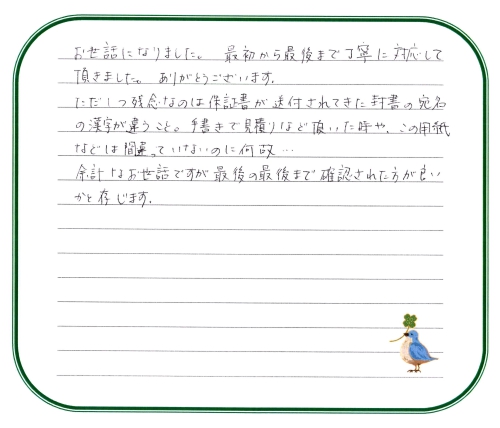 お世話になりました。 最初から最後まで丁寧に対応して
頂きました。 ありがとうございます.
ただ1つ残念なのは保証書が送付されてきた封書の宛名
の漢字が違うこと。手書きで見積りなど頂いた時や、この用紙
などは間違っていないのに何故…
余計なお世話ですが最後の最後まで確認された方が良い
かと存じます.